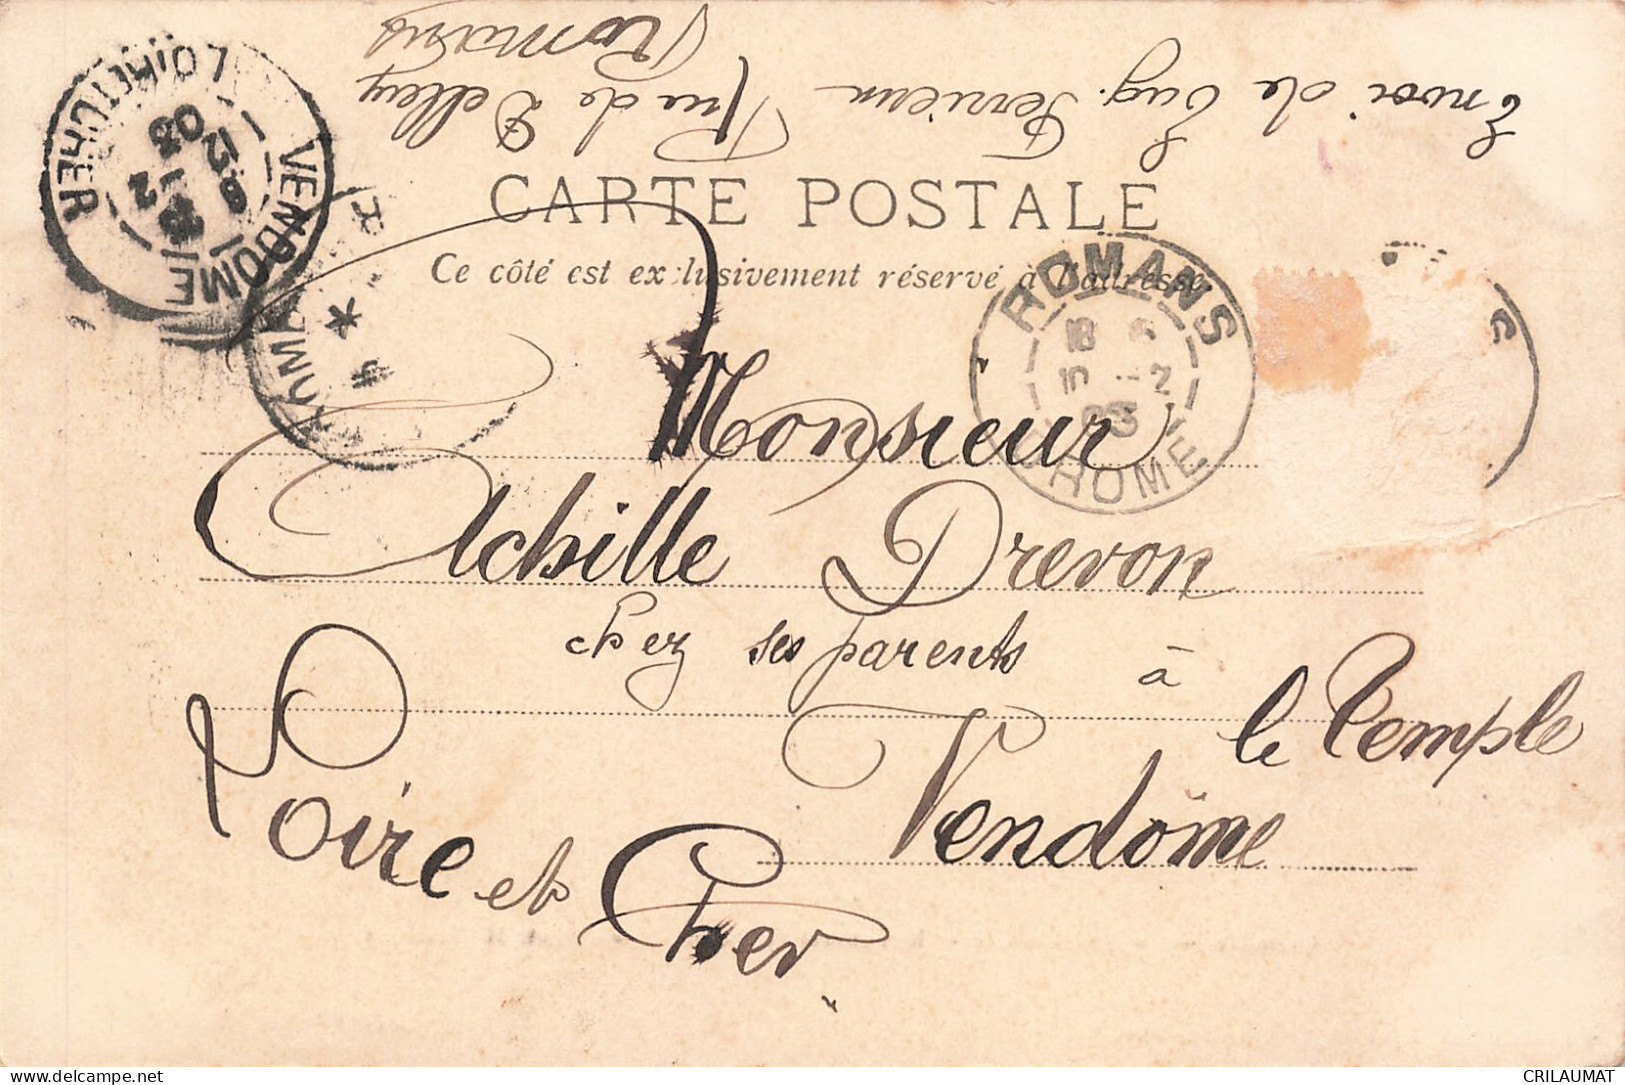 Envoi de Eug. Ferrieux Rue de Delley
Romans
CARTE POSTALE
Ce côté est exclusivement réservé à l'adresse.
VENDOME
12
03
LOIR-ET-CHER
ROMANS
18
10 -2
03
DROME
Monsieur
Achille Drevon
chez ses parents à le Temple
Vendôme
Loire et Cher
delcampe.net
CRILAUMAT